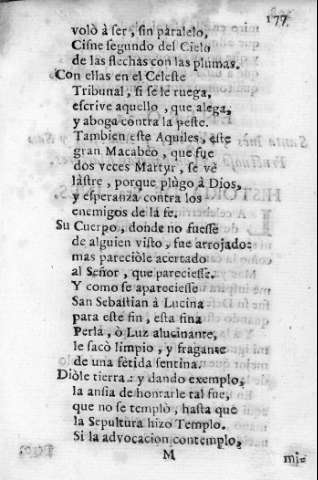 177
volò à ser, sin pàralelo,
Cisne segundo del Cielo
de las flechas con las plumas.
Con ellas en el Celeste
Tribunal, si se le ruega,
escrive aquello, que alega,
y aboga contra la peste.
Tambien este Aquiles, este
gran Macabèo, que fue
dos veces Martyr, se vè
làstre, porque plùgo à Dios,
y esperanza contra los
enemigos de la fe.
Su Cuerpo, donde no fuesse
de alguien visto, fue arrojado:
mas pareciòle acertado
al Señor, que pareciesse.
Y como se apareciesse
San Sebastian à Lucina
para este fin, esta fina
Perla, ò Luz alucinante,
le sacò limpio, y fragante
de una fetida sentina.
Diòle tierra: y dando exemplo,
la ansia de honrarle tal fue,
que no se templò, hasta que
la Sepultura hizo Templo.
Si la advocacion contemplo,
M
mi-